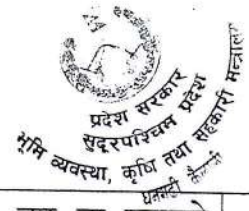 प्रदेश सरकार
सुदूरपश्चिम प्रदेश
भूमि व्यवस्था, कृषि तथा सहकारी मन्त्रालय
धनगढी